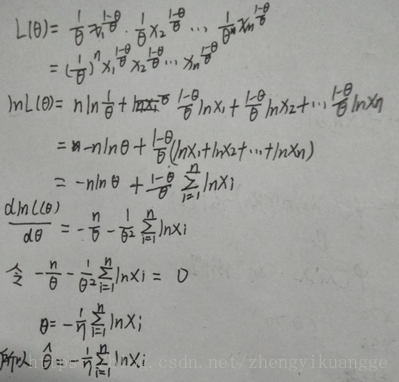 L(θ) = 1/θ x₁^((1-θ)/θ) · 1/θ x₂^((1-θ)/θ) ... 1/θ xₙ^((1-θ)/θ)
= (1/θ)ⁿ x₁^((1-θ)/θ) x₂^((1-θ)/θ) ... xₙ^((1-θ)/θ)
lnL(θ) = n ln 1/θ + (1-θ)/θ lnx₁ + (1-θ)/θ lnx₂ + ... (1-θ)/θ lnxₙ
= -n lnθ + (1-θ)/θ (lnx₁+lnx₂+...+lnxₙ)
= -n lnθ + (1-θ)/θ Σᵢ₌₁ⁿ lnxᵢ
dlnL(θ)/dθ = -n/θ - 1/θ² Σᵢ₌₁ⁿ lnxᵢ
令 -n/θ - 1/θ² Σᵢ₌₁ⁿ lnxᵢ = 0
θ = -1/n Σᵢ₌₁ⁿ lnxᵢ
所以 θ̂ = -1/n Σᵢ₌₁ⁿ lnxᵢ
csdn.net/zhengyikuangge